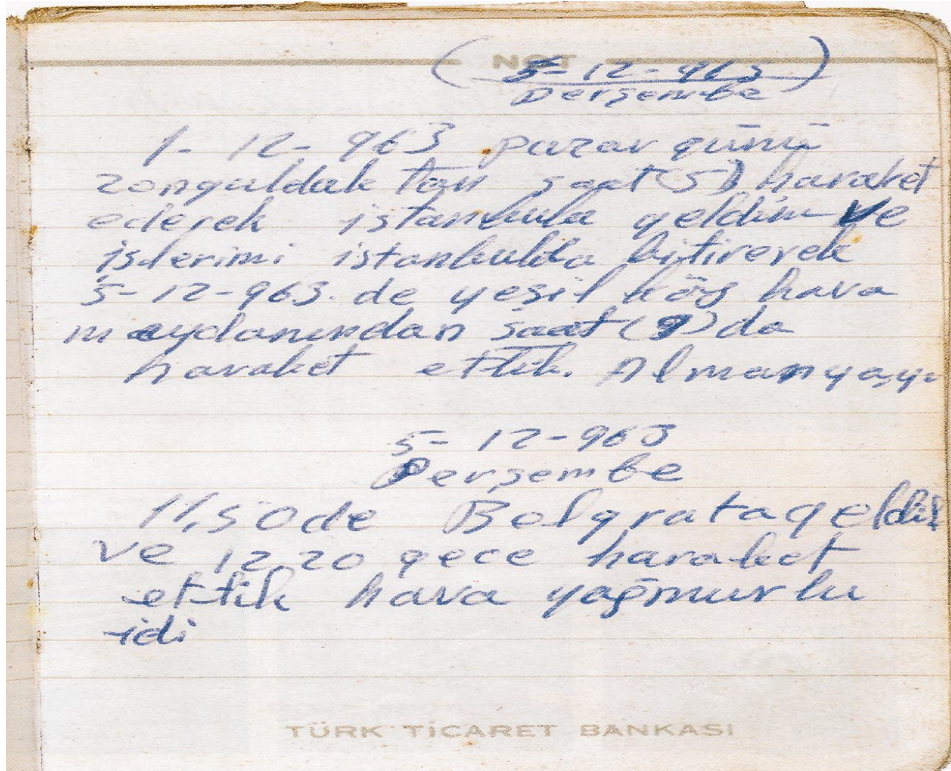 NOT
(5-12-963)
Perşembe
1- 12- 963 pazar günü
zonguldak tan saat (5) haraket
ederek istanbula geldim ve
işlerimi istanbulda bitirerek
5-12-963. de yeşil köy hava
maydanından saat (9) da
haraket ettik. Almanyaya
5- 12-963
Perşembe
11,50 de Belgrata geldik
ve 12,20 gece haraket
ettik hava yağmurlu
idi
TÜRK TİCARET BANKASI